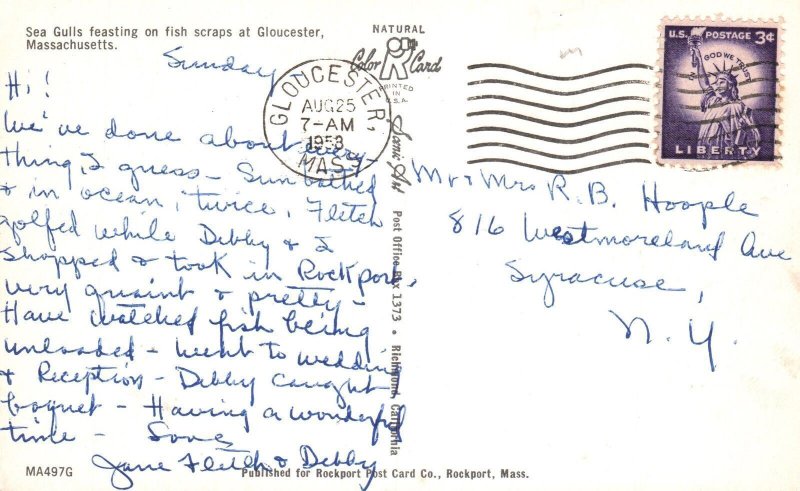 Sea Gulls feasting on fish scraps at Gloucester,
Massachusetts.
NATURAL
Color Card
PRINTED
IN
U.S.A.
GLOUCESTER,
AUG 25
7-AM
1958
MASS
U.S. POSTAGE 3¢
IN GOD WE TRUST
LIBERTY
Sunday
Hi!
We've done about every-
thing, I guess - Sun bathed
& in ocean, twice, Fletch
golfed while Debby & I
shopped & took in Rockport,
very quaint & pretty -
Have watched fish being
unloaded - went to wedding
& Reception - Debby caught
boquet - Having a wonderful
time - Love,
Jane Fletch & Debby
Mr & Mrs R. B. Hoople
816 Westmoreland Ave
Syracuse,
N. Y.
Scenic Art Post Office Box 1373 • Richmond, California
MA497G
Published for Rockport Post Card Co., Rockport, Mass.